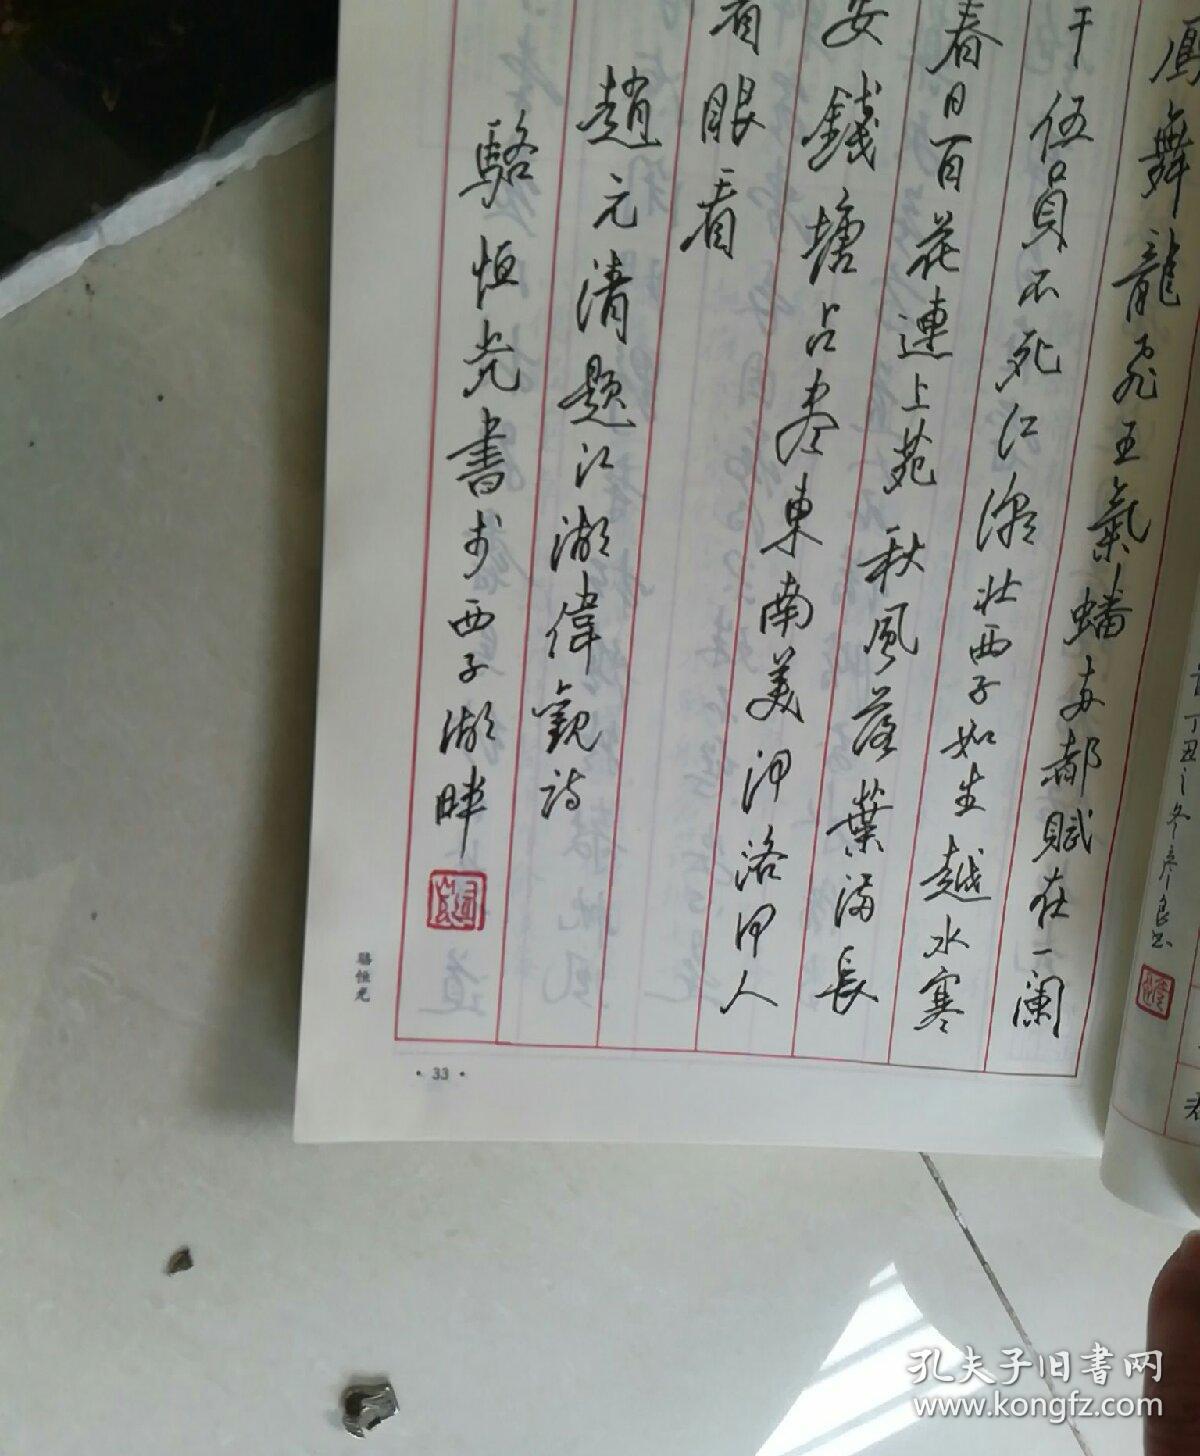 鳳舞龍飛王氣蟠兩都賦在一闌
干伍員不死江濤壯西子如生越水寒
春日百花連上苑秋風落葉滿長
安錢塘占盡東南美沖洛甲人
有眼看
趙元清題江湖偉觀詩
駱恒光書於西子湖畔
駱恒光
·33·
丁丑之冬彥良書
孔夫子旧书网
www.kongfz.com